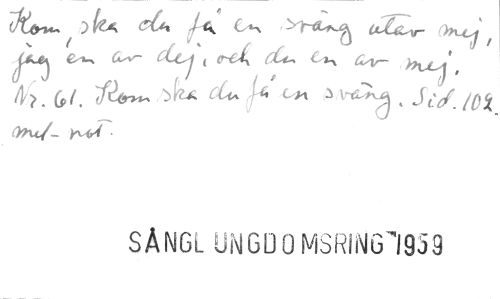 Kom, ska du få en sväng utav mej,
jag en av dej, och du en av mej.
Nr. 61. Kom ska du få en sväng. Sid. 102.
mel-not.
SÅNGL UNGDOMSRING 1959